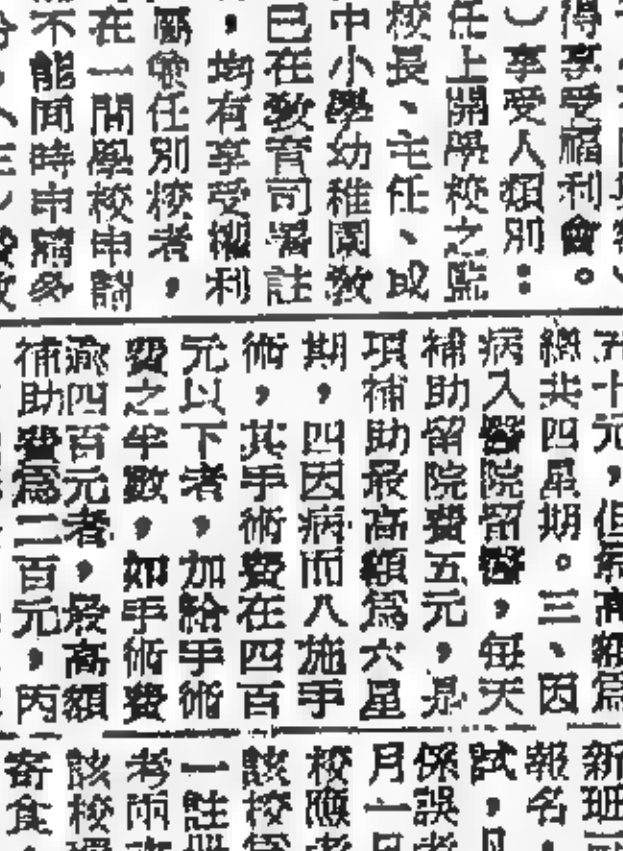 得享受福利會。
︶享受人類別：
任上開學校之監
校長、主任、或
中小學幼稚園教
已在教育司署註
，均有享受福利
屬兼任別校者，
在一間學校申請
不能同時申請多
五十元，但最高額爲
總共四星期。三、因
病入醫院留醫，每天
補助留院費五元，是
項補助最高額爲六星
期，四因病而入施手
術，其手術費在四百
元以下者，加給手術
費之半數，如手術費
逾四百元者，最高額
補助費爲二百元，丙
新班
報名，
試，凡
係誤考
月一日
校應考
該校爲
一註冊
考兩
該校
寄食，